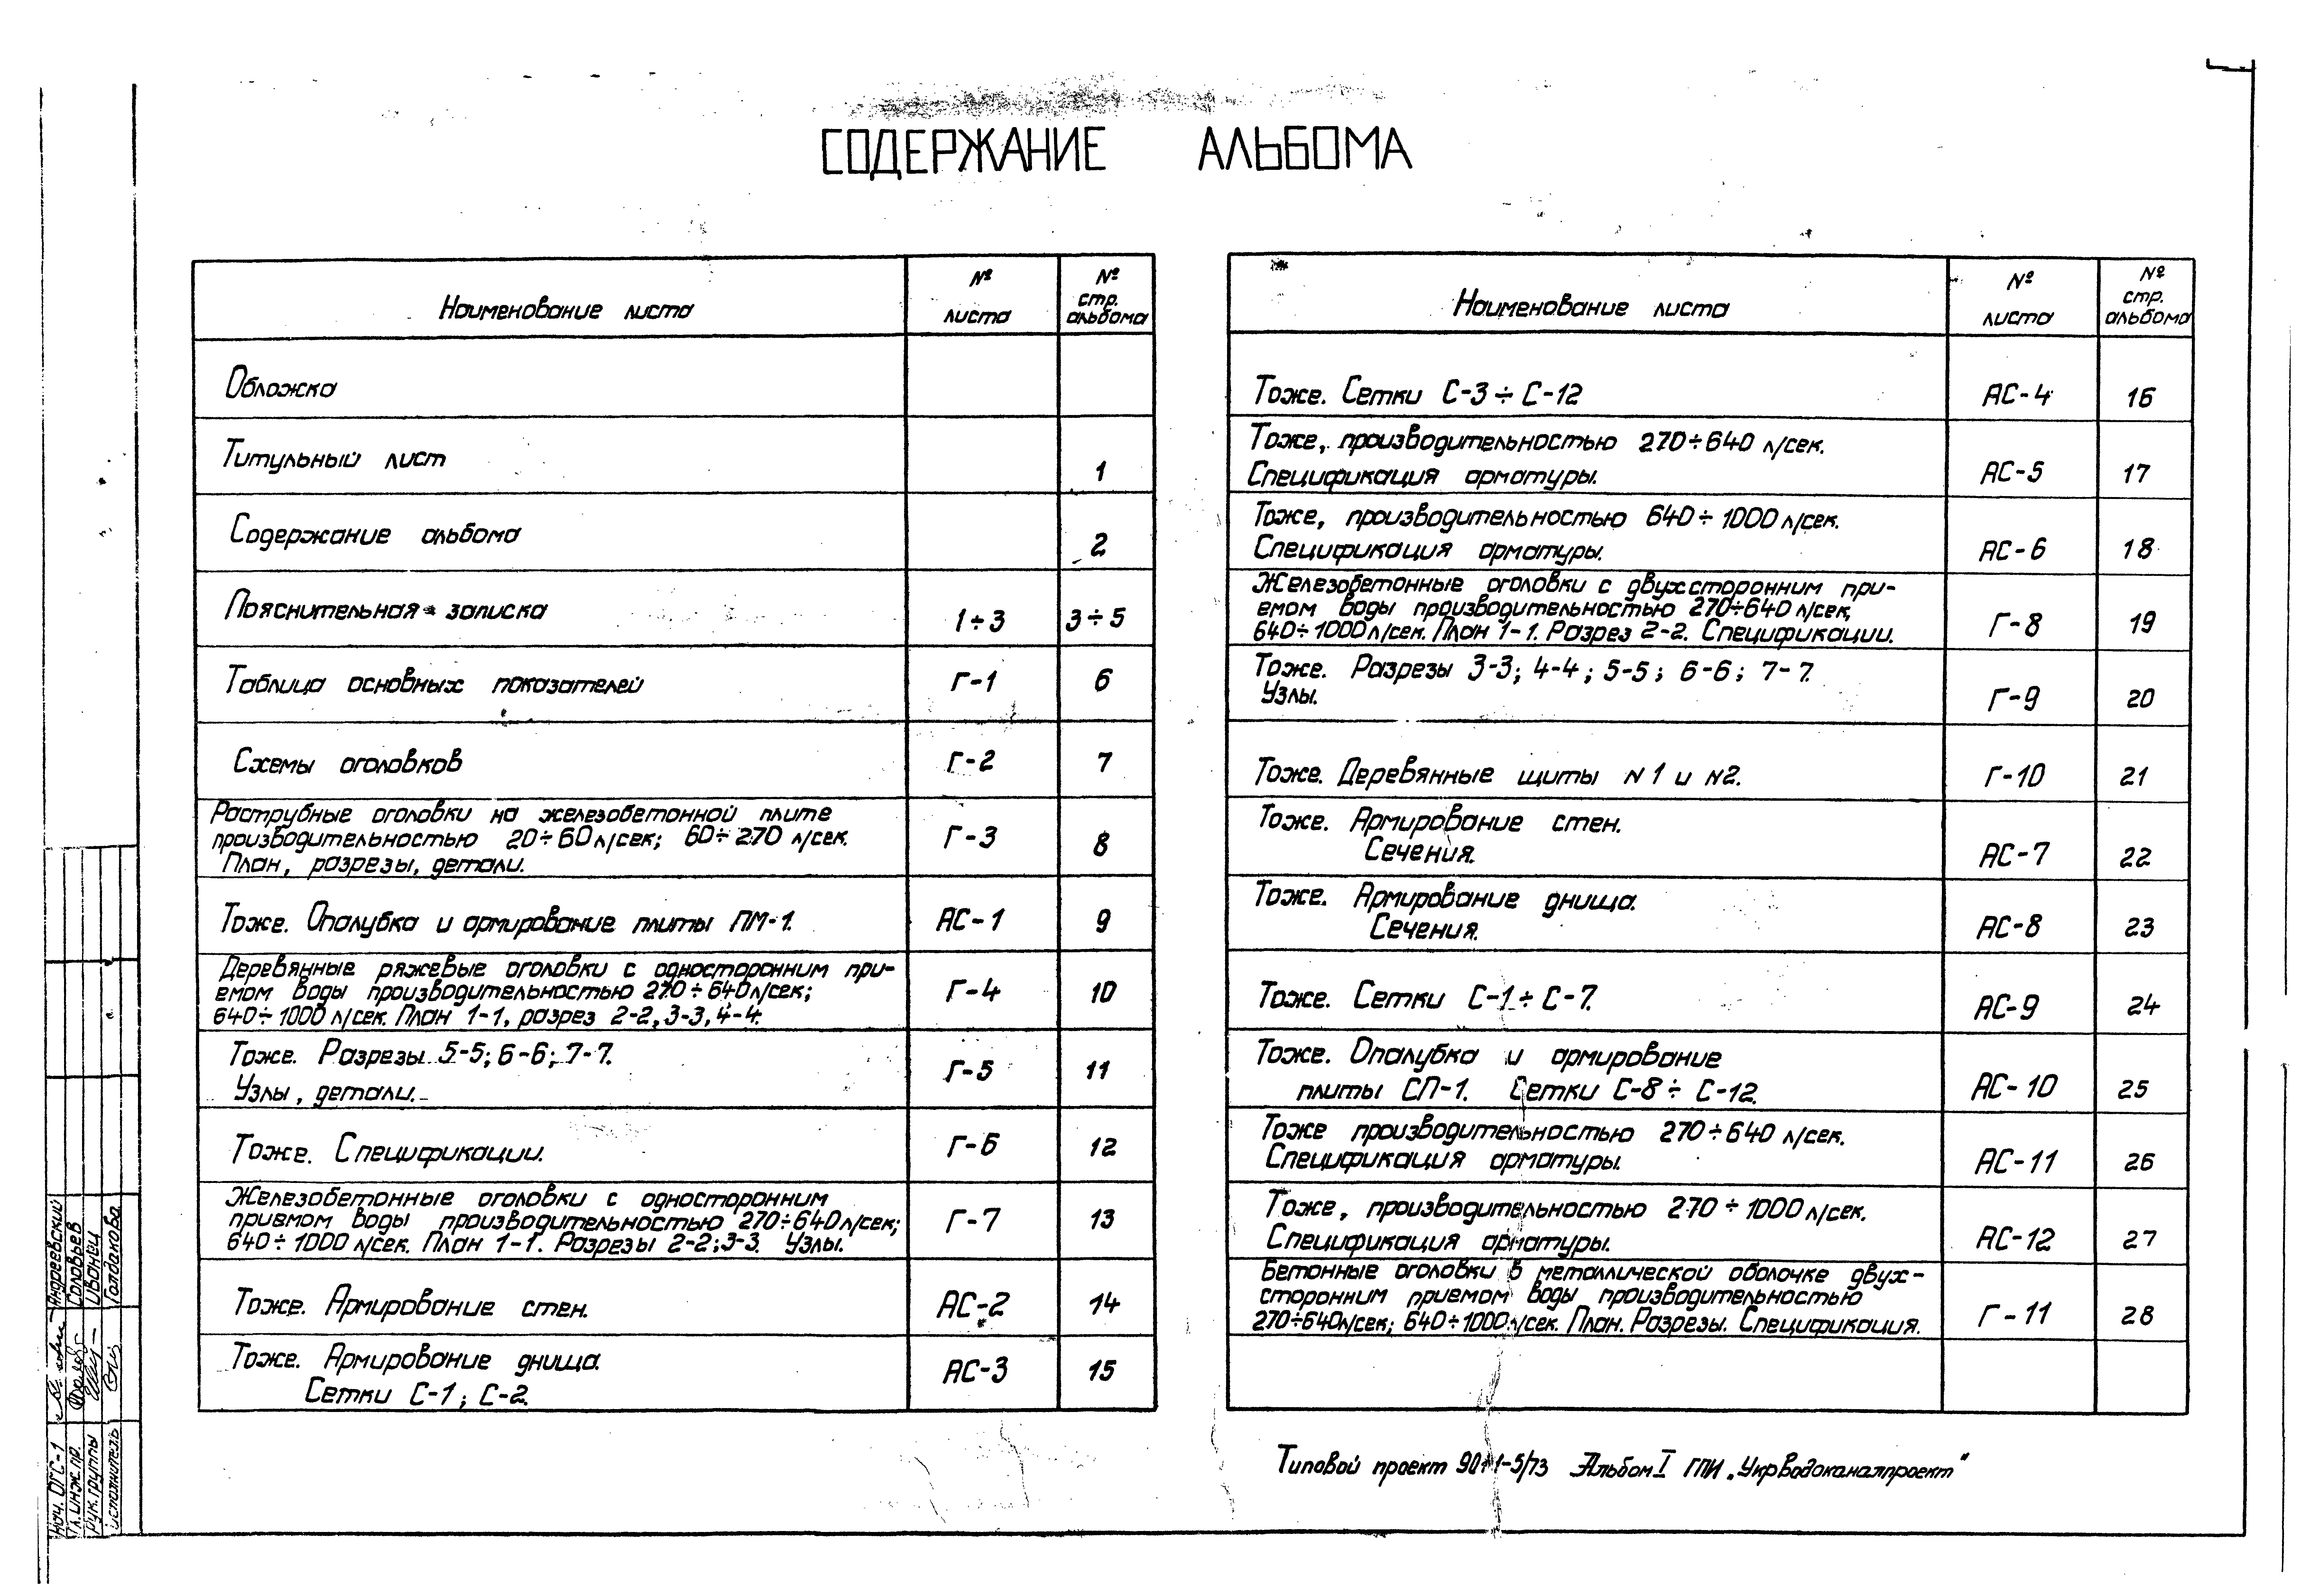 СОДЕРЖАНИЕ АЛЬБОМА
Наименование листа
№ листа
№ стр. альбома
Обложка
Титульный лист 1
Содержание альбома 2
Пояснительная записка 1÷3 3÷5
Таблица основных показателей Г-1 6
Схемы оголовков Г-2 7
Раструбные оголовки на железобетонной плите
производительностью 20÷60 л/сек; 60÷270 л/сек.
План, разрезы, детали. Г-3 8
Тоже. Опалубка и армирование плиты ПМ-1. АС-1 9
Деревянные ряжевые оголовки с односторонним при-
емом воды производительностью 270÷640 л/сек;
640÷1000 л/сек. План 1-1, разрез 2-2, 3-3, 4-4. Г-4 10
Тоже. Разрезы 5-5; 6-6; 7-7.
Узлы, детали. Г-5 11
Тоже. Спецификации. Г-6 12
Железобетонные оголовки с односторонним
приемом воды производительностью 270÷640 л/сек;
640÷1000 л/сек. План 1-1. Разрезы 2-2; 3-3. Узлы. Г-7 13
Тоже. Армирование стен. АС-2 14
Тоже. Армирование днища.
Сетки С-1; С-2. АС-3 15
Наименование листа
№ листа
№ стр. альбома
Тоже. Сетки С-3÷С-12 АС-4 16
Тоже, производительностью 270÷640 л/сек.
Спецификация арматуры. АС-5 17
Тоже, производительностью 640÷1000 л/сек.
Спецификация арматуры. АС-6 18
Железобетонные оголовки с двухсторонним при-
емом воды производительностью 270÷640 л/сек,
640÷1000 л/сек. План 1-1. Разрез 2-2. Спецификации. Г-8 19
Тоже. Разрезы 3-3; 4-4; 5-5; 6-6; 7-7.
Узлы. Г-9 20
Тоже. Деревянные щиты N1 и N2. Г-10 21
Тоже. Армирование стен.
Сечения. АС-7 22
Тоже. Армирование днища.
Сечения. АС-8 23
Тоже. Сетки С-1÷С-7. АС-9 24
Тоже. Опалубка и армирование
плиты СП-1. Сетки С-8÷С-12. АС-10 25
Тоже производительностью 270÷640 л/сек.
Спецификация арматуры. АС-11 26
Тоже, производительностью 270÷1000 л/сек.
Спецификация арматуры. АС-12 27
Бетонные оголовки в металлической оболочке двух-
сторонним приемом воды производительностью
270÷640 л/сек; 640÷1000 л/сек. План. Разрезы. Спецификация. Г-11 28
Типовой проект 901-1-5/73 Альбом I ГПИ „Укрводоканалпроект"
Нач. ОГС-1 Андреевский
Гл. инж. пр. Соловьев
Рук. группы Иванец
исполнитель Галданова